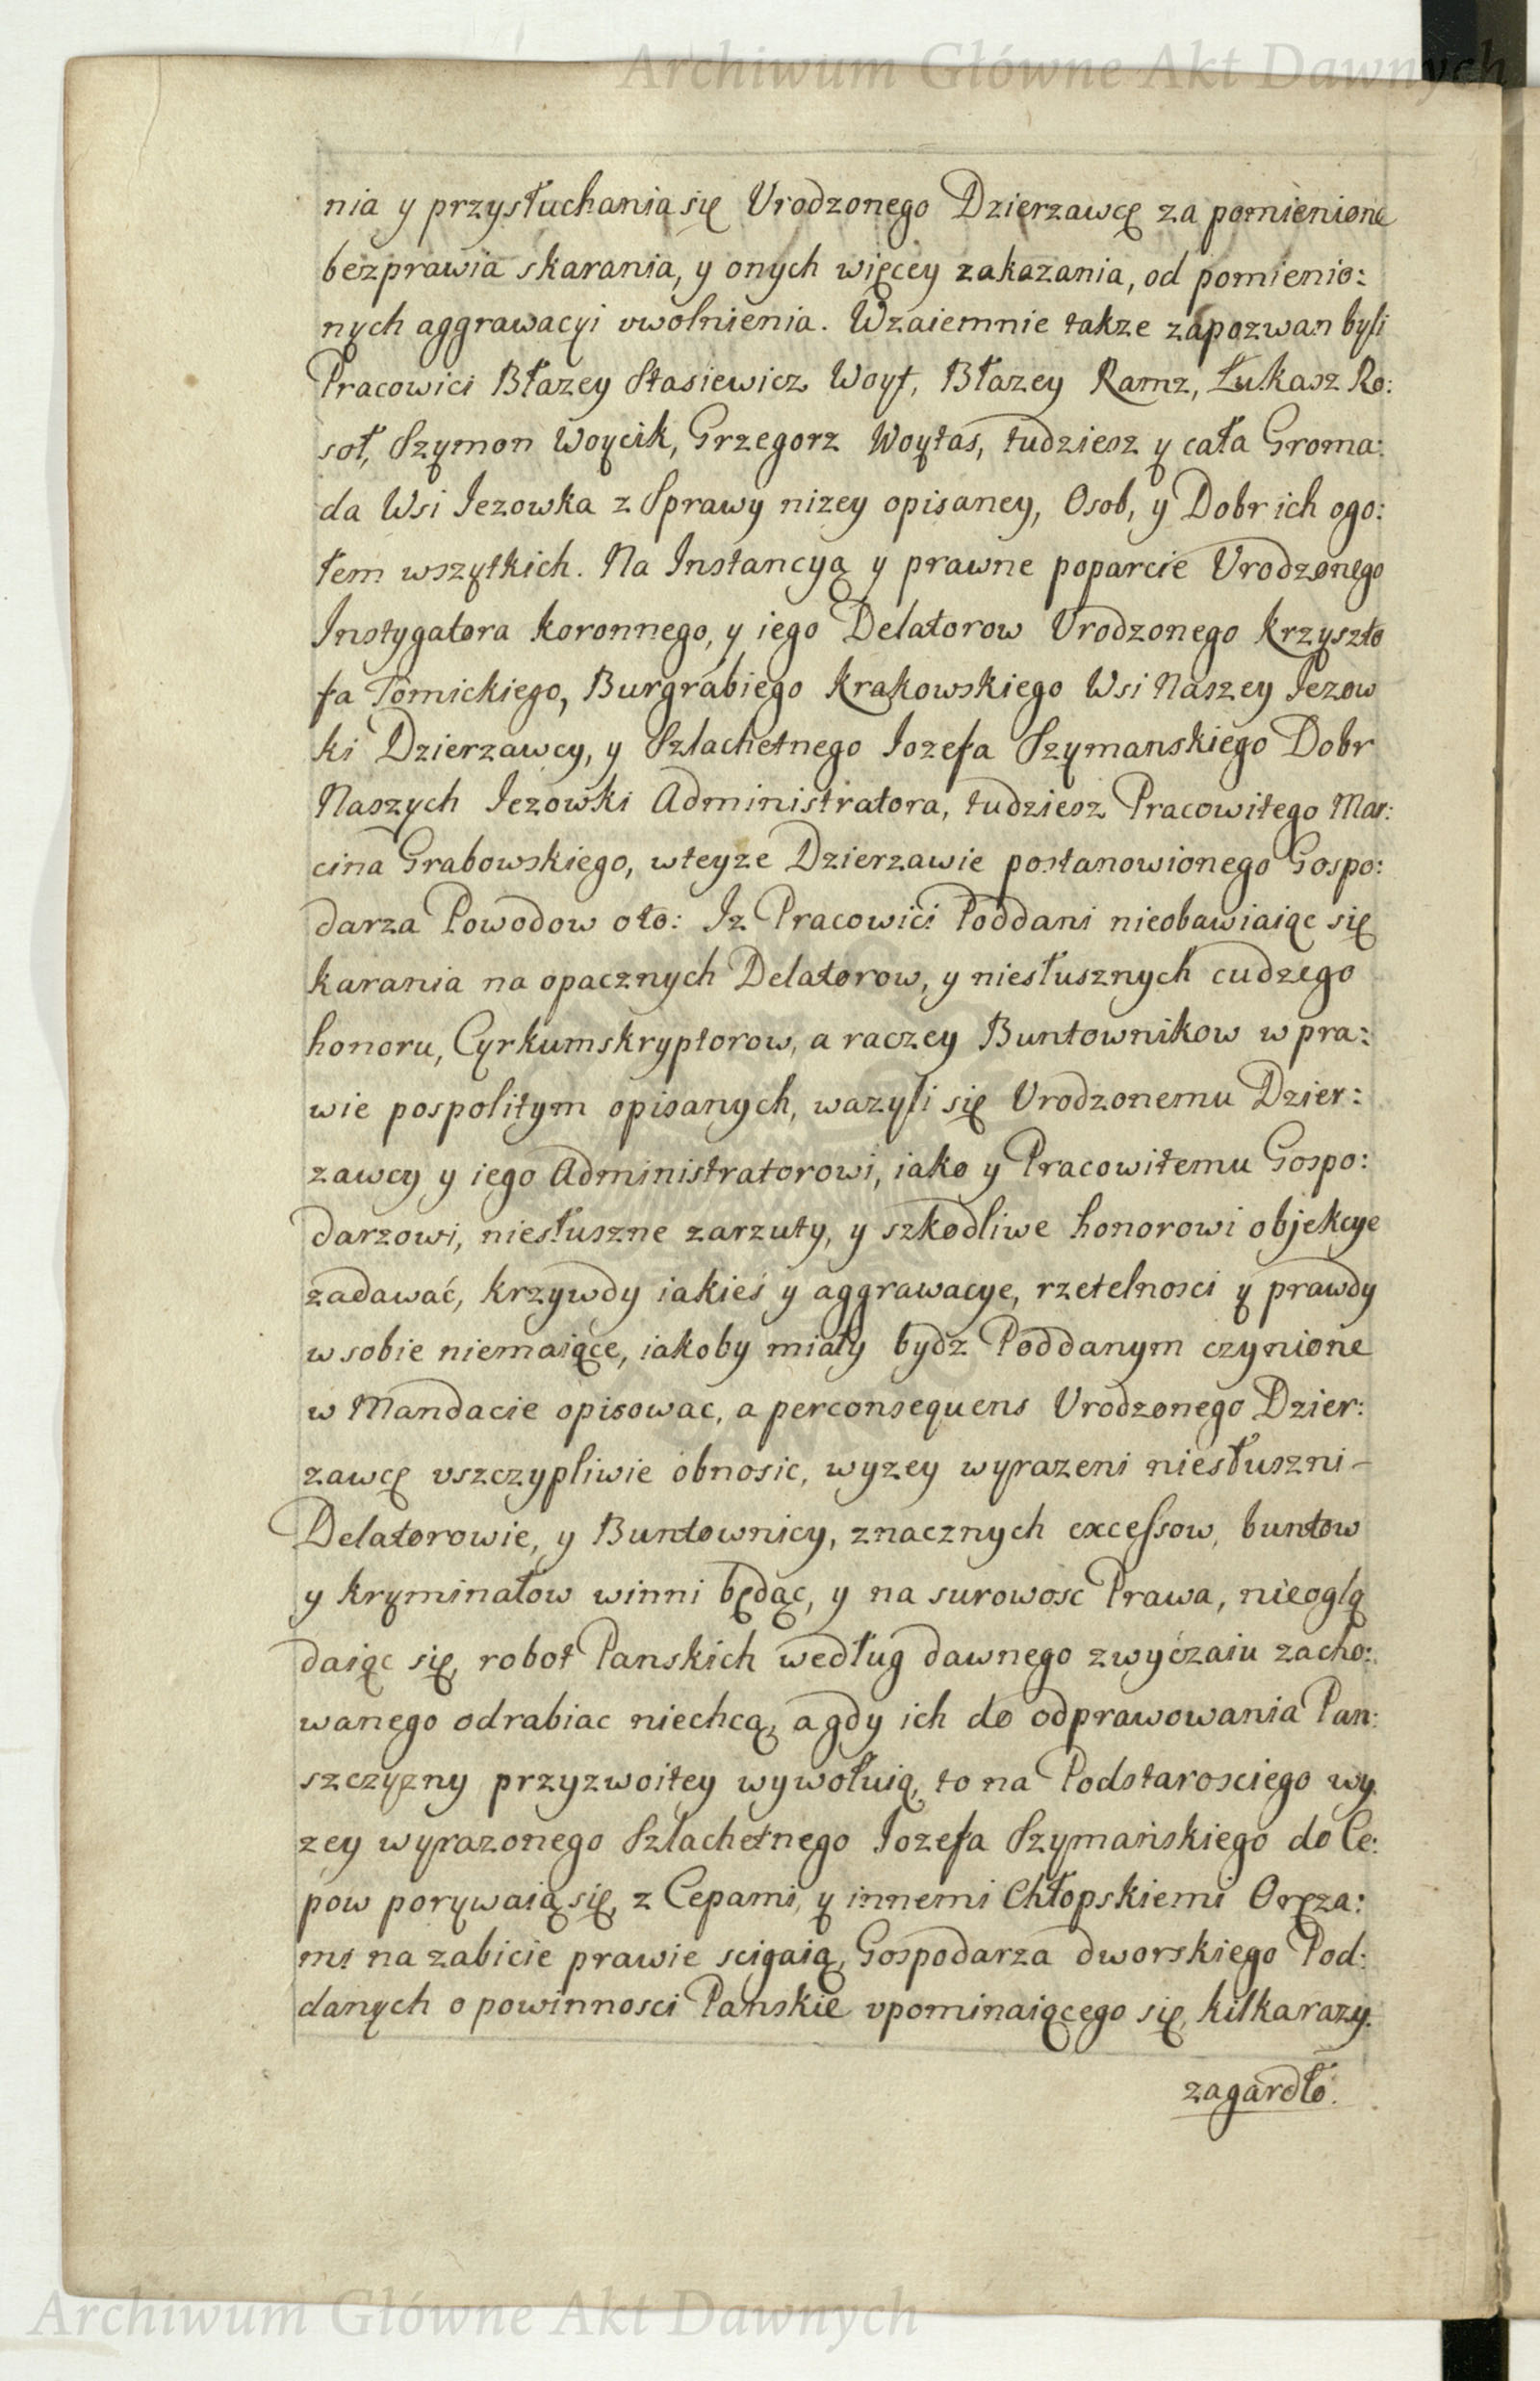 Archiwum Główne Akt Dawnych
nia y przysłuchania się Urodzonego Dzierzawcę za pomienione
bezprawia skarania, y onych więcey zakazania, od pomienio:
nych aggrawacyi uwolnienia. Wzaiemnie takze zapozwan byli
Pracowici Błazey Stasiewicz Woyt, Błazey Ramz, Łukasz Ro:
soł, Szymon Woycik, Grzegorz Woytas, tudziesz y cała Groma:
da Wsi Jezowka z Sprawy nizey opisaney, Osob, y Dobr ich ogo:
łem wszytkich. Na Instancyą y prawne poparcie Urodzonego
Instygatora Koronnego, y iego Delatorow Urodzonego Krzyszto
fa Tomickiego, Burgrabiego Krakowskiego Wsi Naszey Jezow
ki Dzierzawcy, y Szlachetnego Jozefa Szymanskiego Dobr
Naszych Jezowki Administratora, tudziesz Pracowitego Mar:
cina Grabowskiego, wteyze Dzierzawie postanowionego Gospo:
darza Powodow oto: Iz Pracowici Poddani nieobawiaiąc się
karania na opacznych Delatorow, y niesłusznych cudzego
honoru, Cyrkumskryptorow, a raczey Buntownikow w pra:
wie pospolitym opisanych, wazyli się Urodzonemu Dzier:
zawcy y iego Administratorowi, iako y Pracowitemu Gospo:
darzowi, niesłuszne zarzuty, y szkodliwe honorowi objekcye
zadawać, krzywdy iakieś y aggrawacye, rzetelnosci y prawdy
w sobie niemaiące, iakoby miały bydz Poddanym czynione
w Mandacie opisowac, a perconsequens Urodzonego Dzier:
zawcę uszczypliwie obnosic, wyzey wyrazeni niesłuszni-
Delatorowie, y Buntownicy, znacznych excessow, buntow
y kryminałow winni będąc, y na surowosc Prawa, nieoglą
daiąc się, robot Panskich według dawnego zwyczaiu zacho:
wanego odrabiac niechcą, a gdy ich do odprawowania Pan:
szczyzny przyzwoitey wywołuią, to na Podstarosciego wy
zey wyrazonego Szlachetnego Jozefa Szymańskiego do Ce:
pow porywaią się, z Cepami, y innemi Chłopskiemi Oręza:
mi na zabicie prawie scigaią, Gospodarza dworskiego Pod:
danych o powinnosci Panskie upominaiącego się, kilka razy.
zagardło.
Archiwum Główne Akt Dawnych